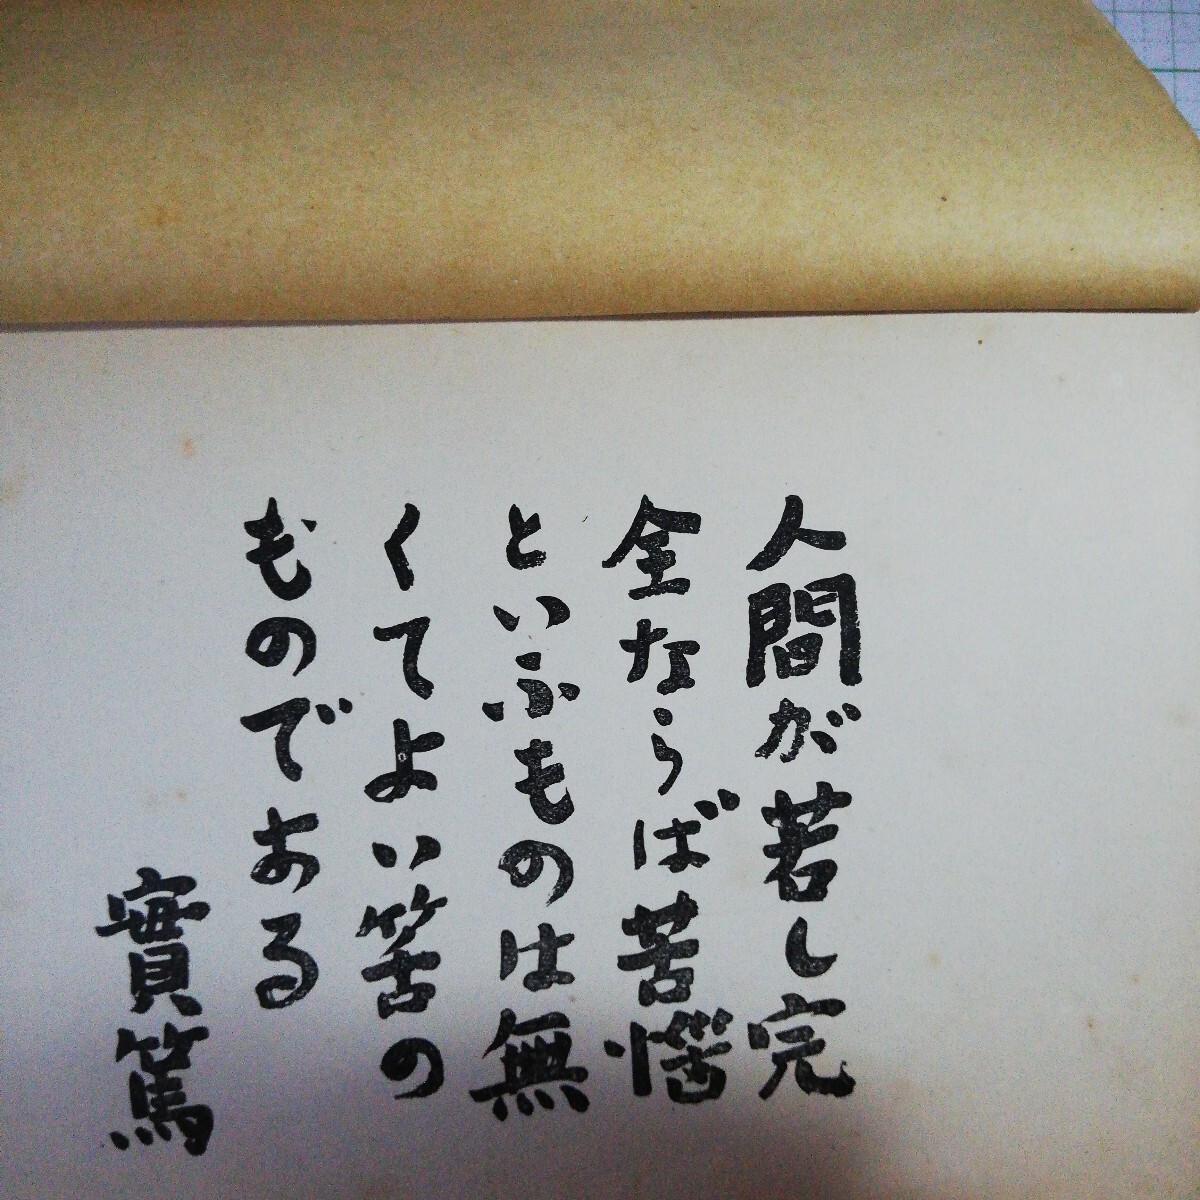 人間が若し完
全ならば苦惱
といふものは無
くてよい筈の
ものである
實篤